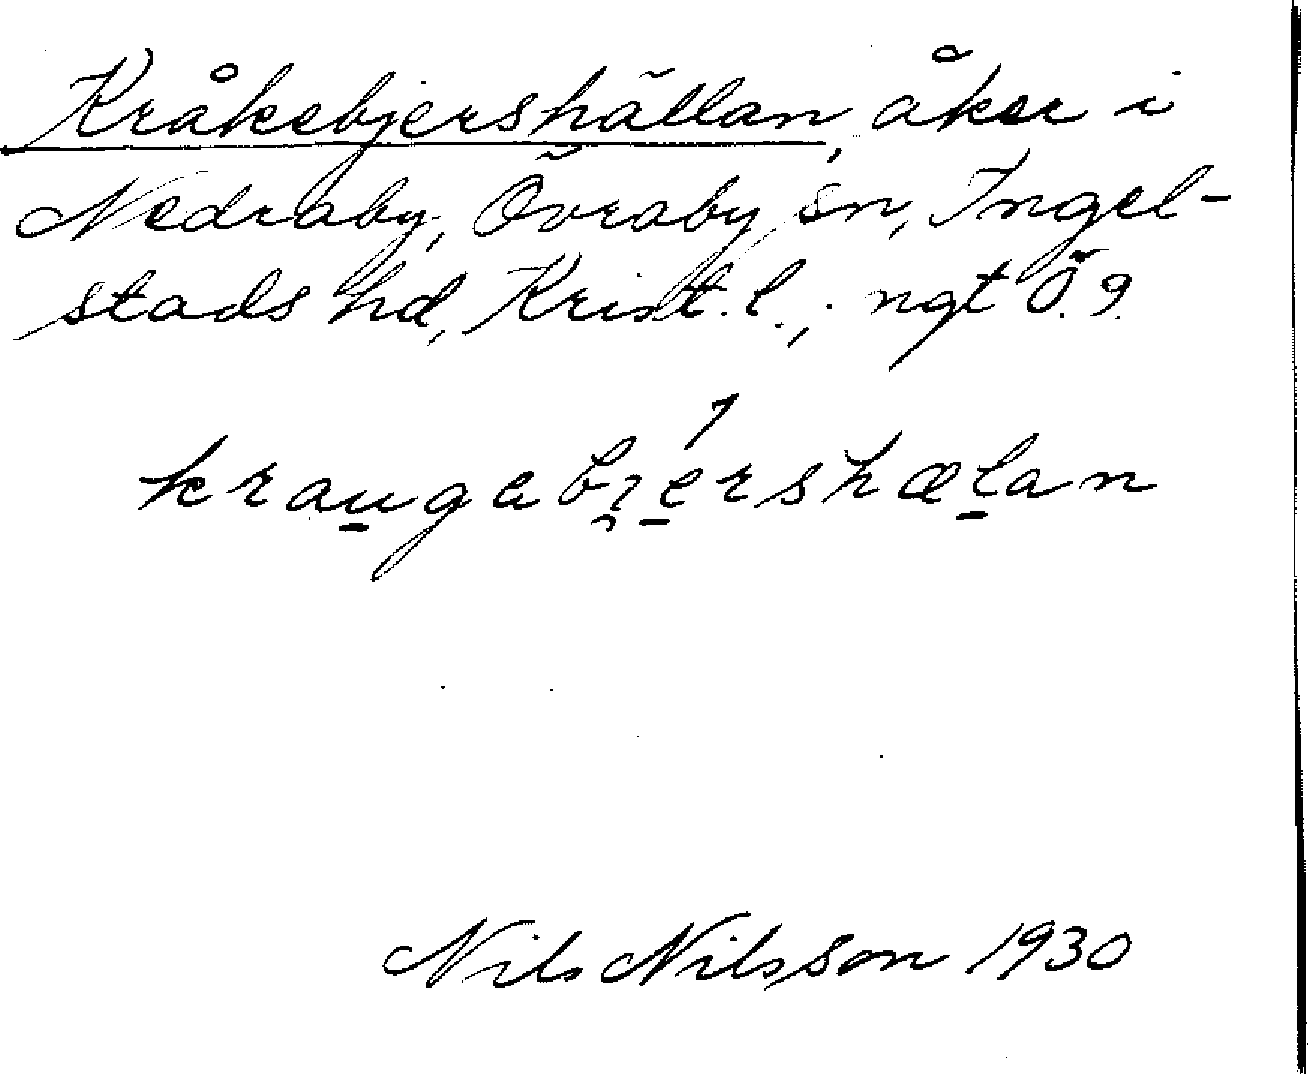 Kråkebjershällan, åker i
Nedraby, Övraby sn, Ingel-
stads hd, Krist. l.; ngt Ö. 9.
kraugabjershælan
Nils Nilsson 1930